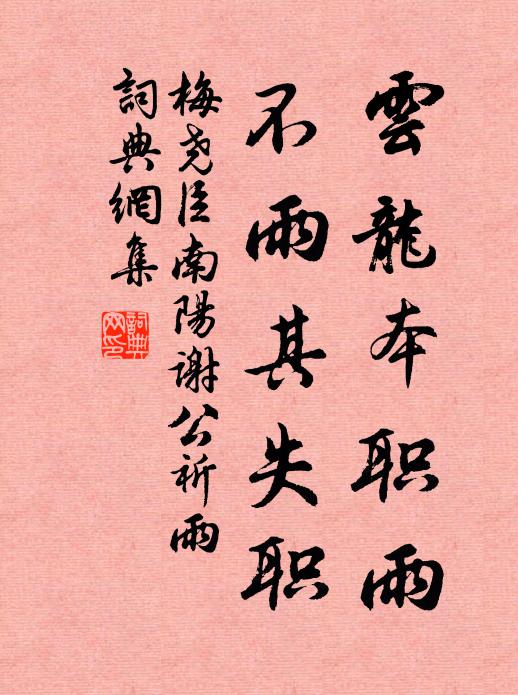 雲龍本职雨
不雨其失职
梅尧臣南陽谢公祈雨
詞典網集
詞典